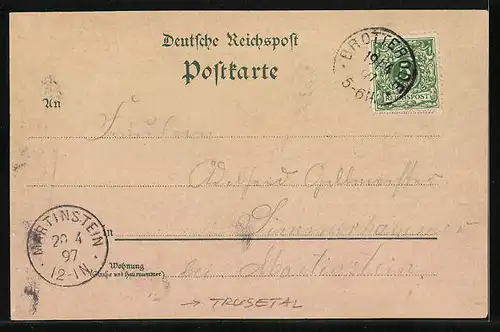 Deutsche Reichspost
Postkarte
BROTTERODE
19/4
97
5-6N
REICHSPOST
An
Fräulein
in
MARTINSTEIN
20 4
97
12-1N
Wohnung
(Straße und Hausnummer)
bei Martinstein
→ TRUSETAL